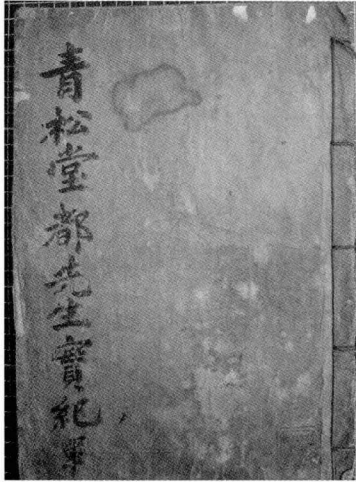 青松堂都先生實紀單